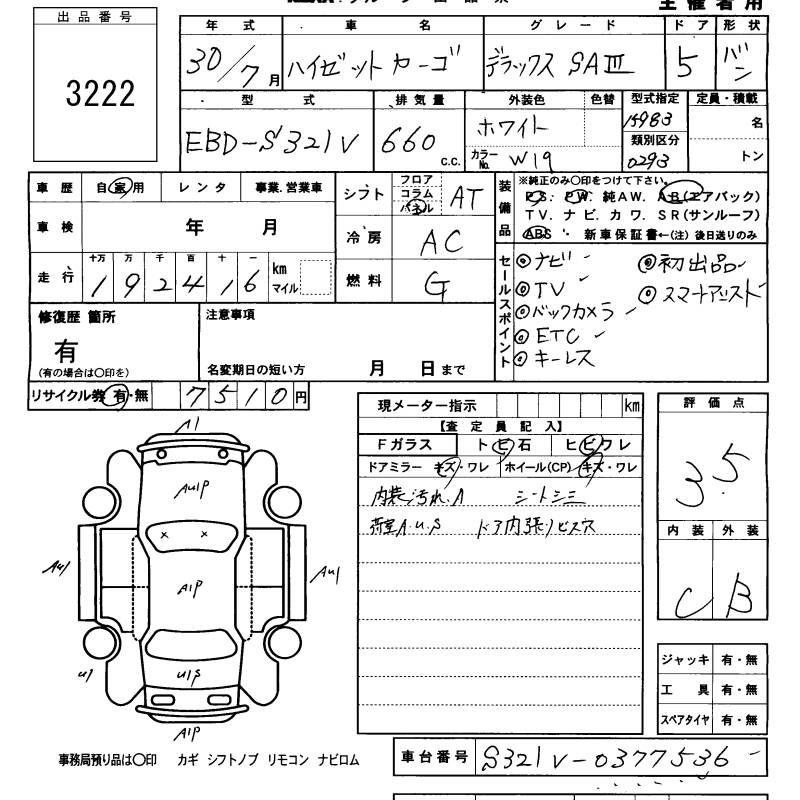 主催者用
出品番号
3222
年式 車名 グレード ドア 形状
30/7月 ハイゼットカーゴ デラックス SAⅢ 5 バン
型式 排気量 外装色 色替 型式指定 定員・積載
EBD-S321V 660 c.c. ホワイト 15983 名
カラーNo. W19 類別区分 0293 トン
車歴 自家用 レンタ 事業.営業車 シフト フロア コラム パネル AT
車検 年 月 冷房 AC
走行 十万 万 千 百 十 一
192416 km マイル 燃料 G
装備品 ※純正のみ〇印をつけて下さい。
PS. PW. 純AW. AB(エアバック)
TV. ナビ. カワ. SR(サンルーフ)
ABS 新車保証書←(注)後日送りのみ
セールスポイント
◎ナビ ◎初出品
◎TV ◎スマートアシスト
◎バックカメラ
◎ETC
◎キーレス
修復歴 箇所 注意事項
有
(有の場合は〇印を) 名変期日の短い方 月 日まで
リサイクル券 有・無 7510円
現メーター指示 km 評価点
【査定員記入】 3.5
Fガラス トビ石 ヒビワレ
ドアミラー キズ・ワレ ホイール(CP) キズ・ワレ
内装汚れ.A シートシミ
荷室A.U.S ドア内張りビス穴
内装 外装
C B
A1
AU1P
A1P
AU1 AU1
U1
U1S
A1P
ジャッキ 有・無
工具 有・無
スペアタイヤ 有・無
事務局預り品は〇印 カギ シフトノブ リモコン ナビロム
車台番号 S321V-0377536